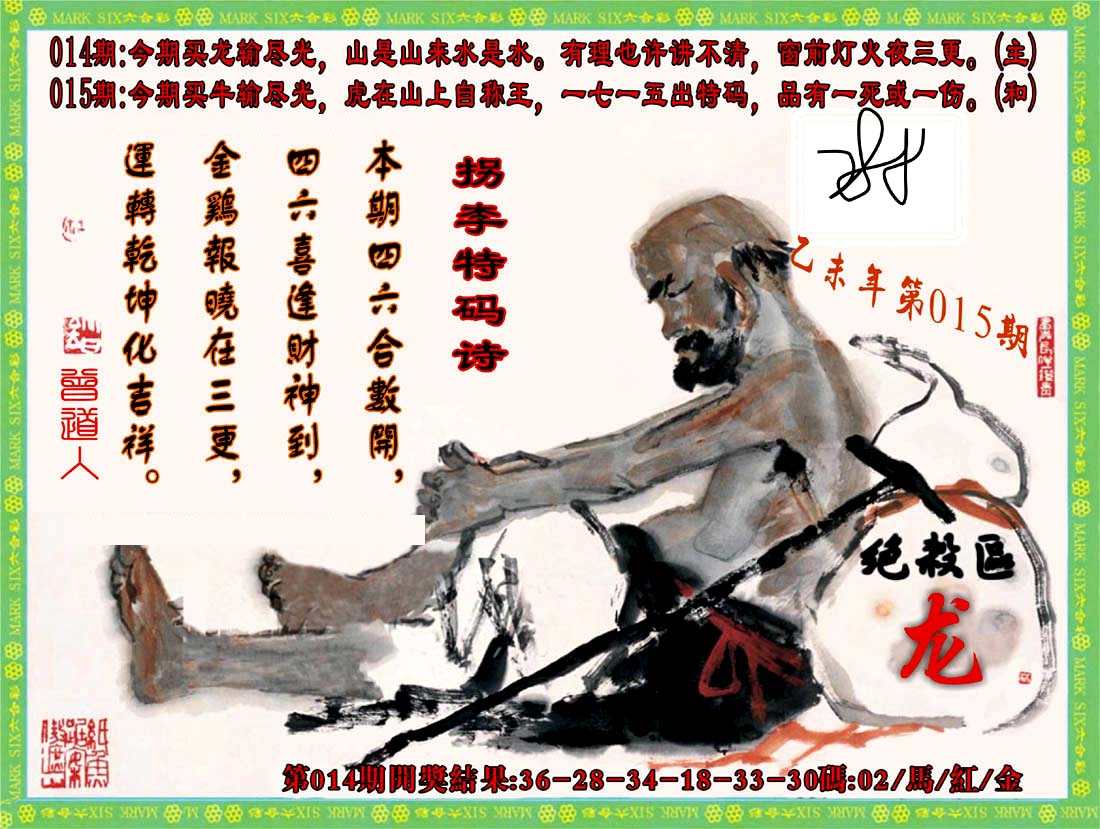 MARK SIX六合彩
014期:今期买龙输尽光，山是山来水是水。有理也许讲不清，窗前灯火夜三更。(主)
015期:今期买牛输尽光，虎在山上自称王，一七一五出特码，品有一死或一伤。(和)
拐李特码诗
本期四六合數開，
四六喜逢財神到，
金鷄報曉在三更，
運轉乾坤化吉祥。
曾道人
乙未年第015期
绝殺區
龙
第014期開獎結果:36-28-34-18-33-30碼:02/馬/紅/金